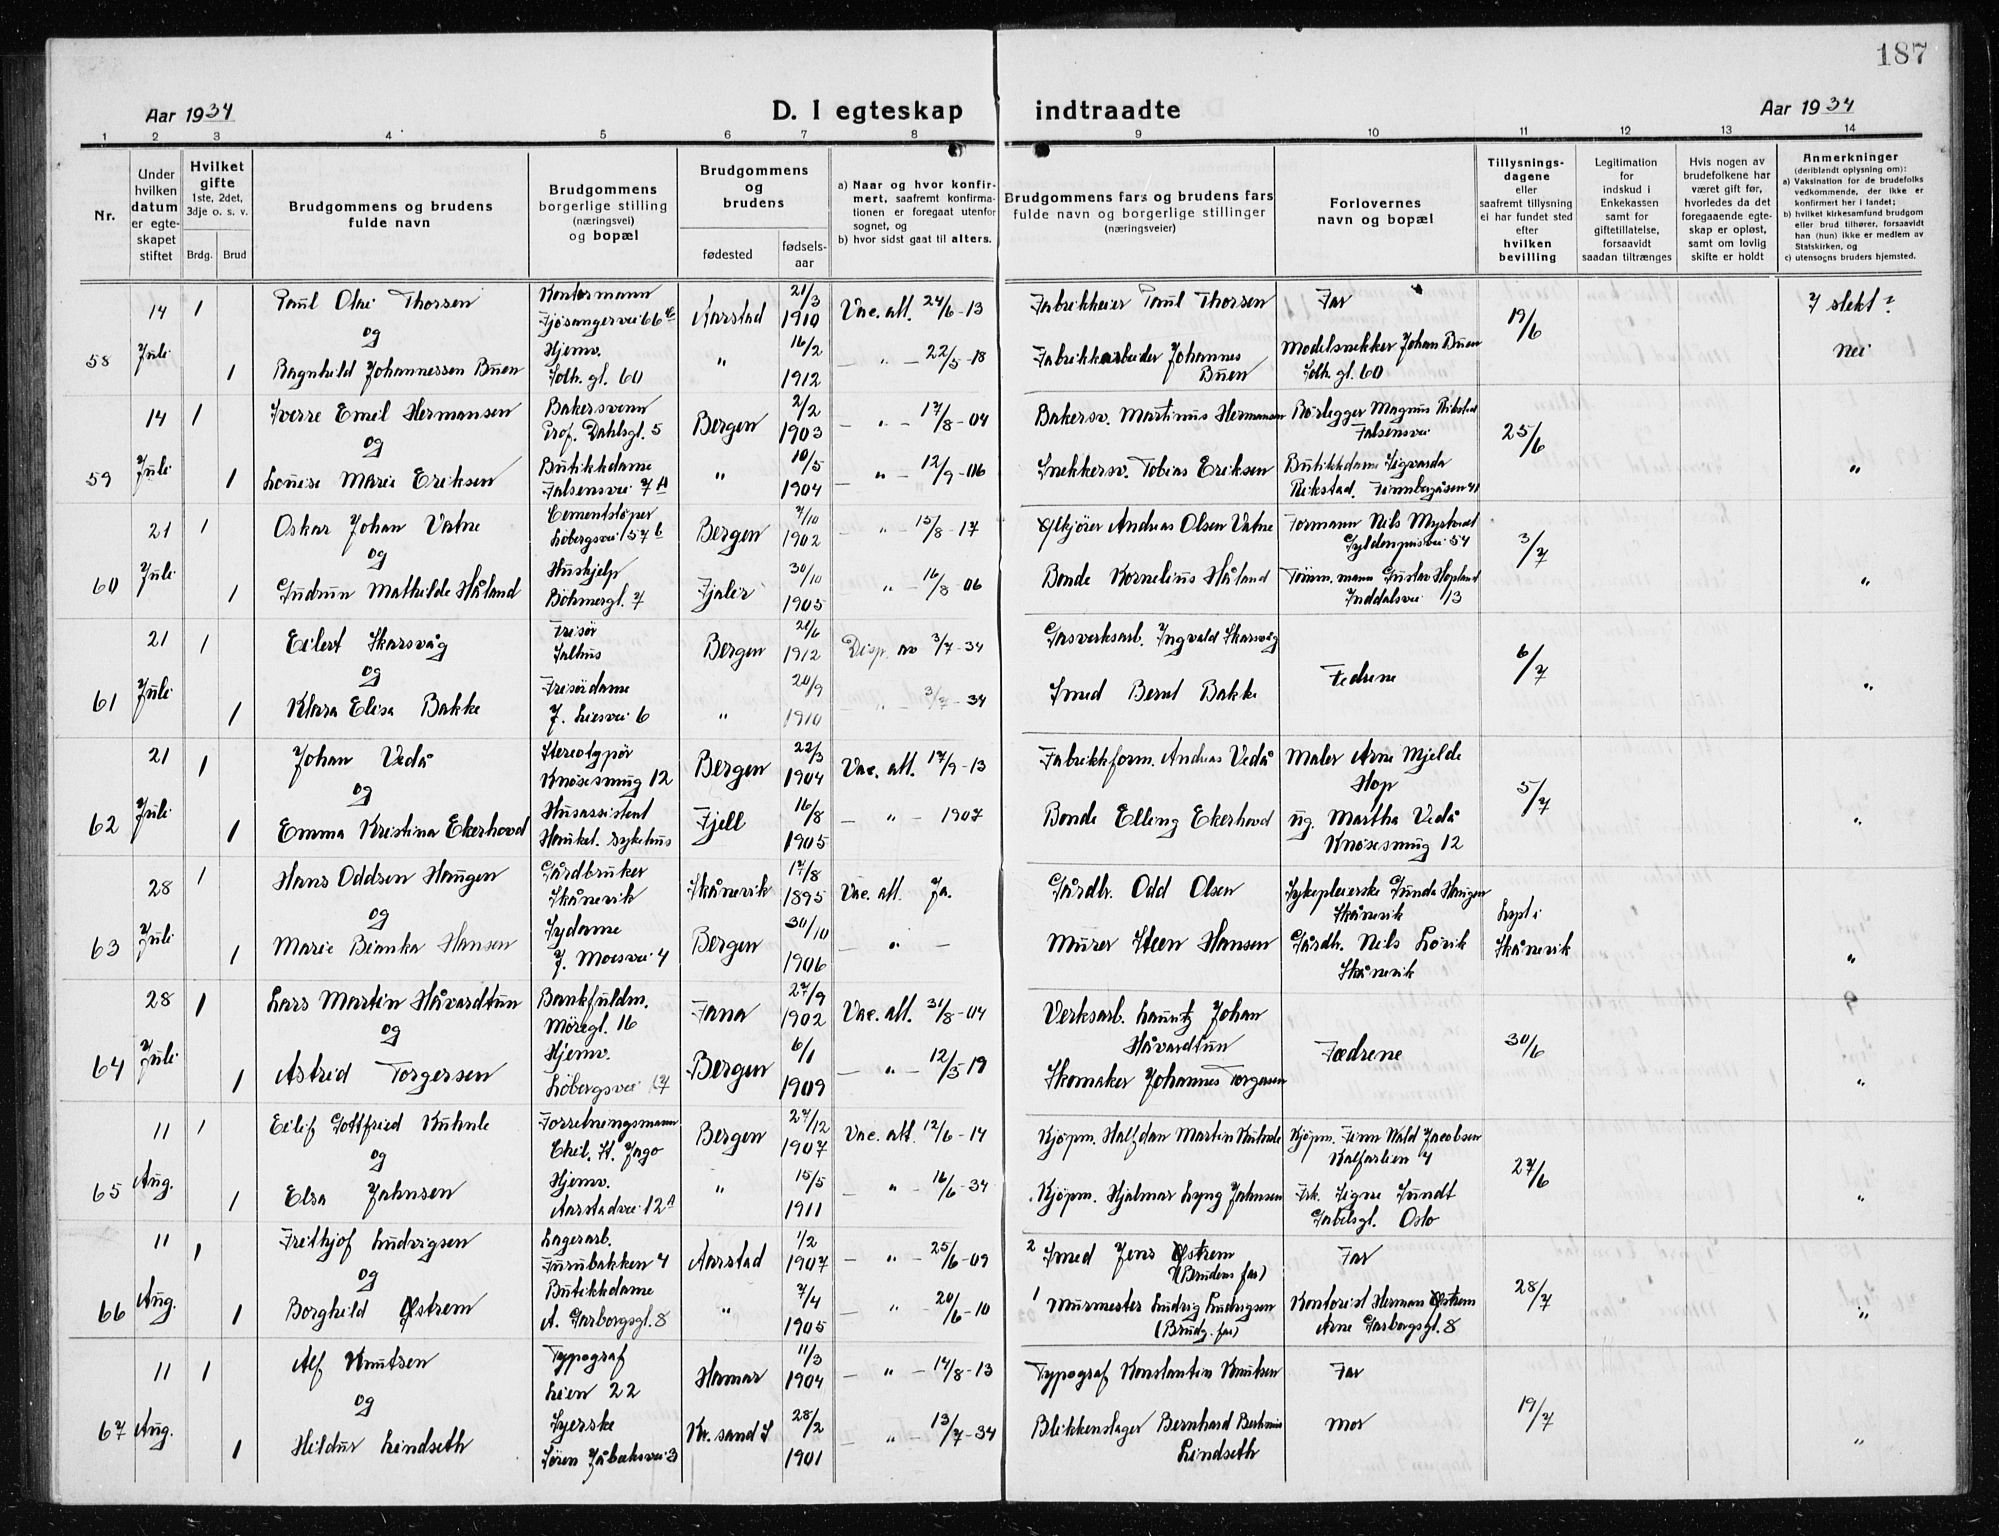 187
Aar 1934
D. I egteskap
indtraadte
Aar 1934
1 2 3 4 5 6 7 8 9 10 11 12 13 14
Nr.
Under hvilken datum er egteskapet stiftet
Hvilket gifte
1ste, 2det, 3dje o. s. v.
Brdg. Brud
Brudgommens og brudens fulde navn
Brudgommens borgerlige stilling (næringsvei) og bopæl
Brudgommens og brudens
fødested
fødsels-aar
a) Naar og hvor konfirmert, saafremt konfirmationen er foregaat utenfor sognet, og
b) hvor sidst gaat til alters.
Brudgommens fars og brudens fars fulde navn og borgerlige stillinger (næringsveier)
Forlovernes navn og bopæl
Tillysningsdagene eller saafremt tillysning ei har fundet sted efter hvilken bevilling
Legitimation for indskud i Enkekassen samt for giftetillatelse, forsaavidt saadan tiltrænges
Hvis nogen av brudefolkene har været gift før, hvorledes da det foregaaende egteskap er opløst, samt om lovlig skifte er holdt
Anmerkninger
(deriblandt oplysning om):
a) Vaksination for de brudefolks vedkommende, der ikke er konfirmert her i landet;
b) hvilket kirkesamfund brudgom eller brud tilhører, forsaavidt han (hun) ikke er medlem av Statskirken, og
c) utensogns bruders hjemsted.
58 14 Juli 1 Paul Olai Thorsen Kontormann Fjøsangervei 66 Aarstad 21/3 1910 Vac. att. 24/6-13 Fabrikkeier Paul Thorsen Far 19/6 I slekt?
og
1 Ragnhild Johannessen Buen Hjemv. Solh. gl. 60 " 16/2 1912 — " — 22/5-18 Fabrikkarbeider Johannes Buen Modelsnekker Johan Buen Solh. gl. 60 nei
59 14 Juli 1 Sverre Emil Hermansen Bakersvenn Prof. Dahlsgl. 5 Bergen 2/2 1903 — " — 17/8-04 Bakersv. Martinus Hermansen Rørlegger Magnus Rikstad Falsensvei 25/6
og
1 Louise Marie Eriksen Butikkdame Falsensvei 7A " 10/5 1904 — " — 12/9-06 Snekkersv. Tobias Eriksen Butikkdame Sigvarda Rikstad "
60 21 Juli 1 Oskar Johan Vatne Cementstøper Løbergsvei 57 b Bergen 7/10 1902 — " — 15/8-17 Ølkjører Andreas Olsen Vatne Formann Nils 3/7
og
1 Gudrun Mathilde Håland Huskjelp Böhmergl. 7 Fjaler 30/10 1905 " — 16/8-06 Bonde Kornelius Håland Tømm. mann Gustav Hopland Inndalsvei 13 "
61 21 Juli 1 Eilert Skarsvåg Frisør Salhus Bergen 21/6 1912 Disp. av 3/7-34 Gasverksarb. Ingvald Skarsvåg 6/7
og Fedrene
1 Klara Elisa Bakke Frisørdame J. Liesvei 6 " 20/9 1910 — " — 3/7-34 Smed Bernt Bakke "
62 21 Juli 1 Johan Vedå Stereotypør Knøsesmug 12 Bergen 22/3 1904 Vac. att. 17/9-13 Fabrikkform. Andreas Vedå Maler Arne Mjelde Hop 5/7
og
1 Emma Kristina Ekerhovd Husassistent Haukel. sykehus Fjell 16/8 1905 — " — 1907 Bonde Elling Ekerhovd ug. Martha Vedå Knøsesmug 12 "
63 28 Juli 1 Hans Oddsen Haugen Gårdbruker Skånevik Skånevik 17/8 1895 Vac. att. Ja. Gårdbr. Odd Olsen Sykepleierske Gunda Haugen Skånevik Lyst i Skånevik
og
1 Marie Bianka Hansen Sydame J. Moesvei 4 Bergen 30/10 1906 — " — Murer Steen Hansen Gårdbr. Nils Lørik Skånevik "
64 28 Juli 1 Lars Martin Håvardtun Bankfuldm. Møregl. 16 Fana 27/9 1902 Vac. att. 31/8-04 Verksarb. Lauritz Johan Håvardtun Fædrene 30/6
og
1 Astrid Torgersen Hjemv. Løbergsvei Bergen 6/1 1909 — " — 12/5-19 Skomaker Johannes Torgersen "
65 11 Aug. 1 Eilif Gottfried Kuhnle Forretningsmann Bergen 27/12 1907 Vac. att. 12/6-14 Kjøpm. Halfdan Martin Kuhnle Kjøpm. Finn Wald Jacobsen Kalfarlien 4 27/6
og
1 Elsa Jahnsen Hjemv. Aarstadvei 12A " 15/5 1911 — " — 16/6-34 Kjøpm. Hjalmar Lyng Jahnsen Frk. Signe Sundt Gabelsgl. Oslo "
66 11 Aug. 1 Frithjof Ludvigsen Lagerarb. Furubakken 4 Aarstad 1/2 1907 — " — 25/6-09 2 Smed Jens Østrem (Brudens far) Far 28/7
og
1 Borghild Østrem Butikkdame A. Garborgsgl. 8 " 7/4 1905 " — 20/6-10 1 Murmester Ludvig Ludvigsen (Brudg. far) Kontorist Herman Østrem Arne Garborgsgl. 8 "
67 11 Aug. 1 Alf Knutsen Typograf Lien 22 Hamar 11/3 1904 — " — 14/8-13 Typograf Konstantin Knutsen Far 19/7
og
1 Hildur Lindseth Syerske Kr. sand S 28/2 1901 — " — 13/7-34 Blikkenslager Bernhard Lindseth Mor "